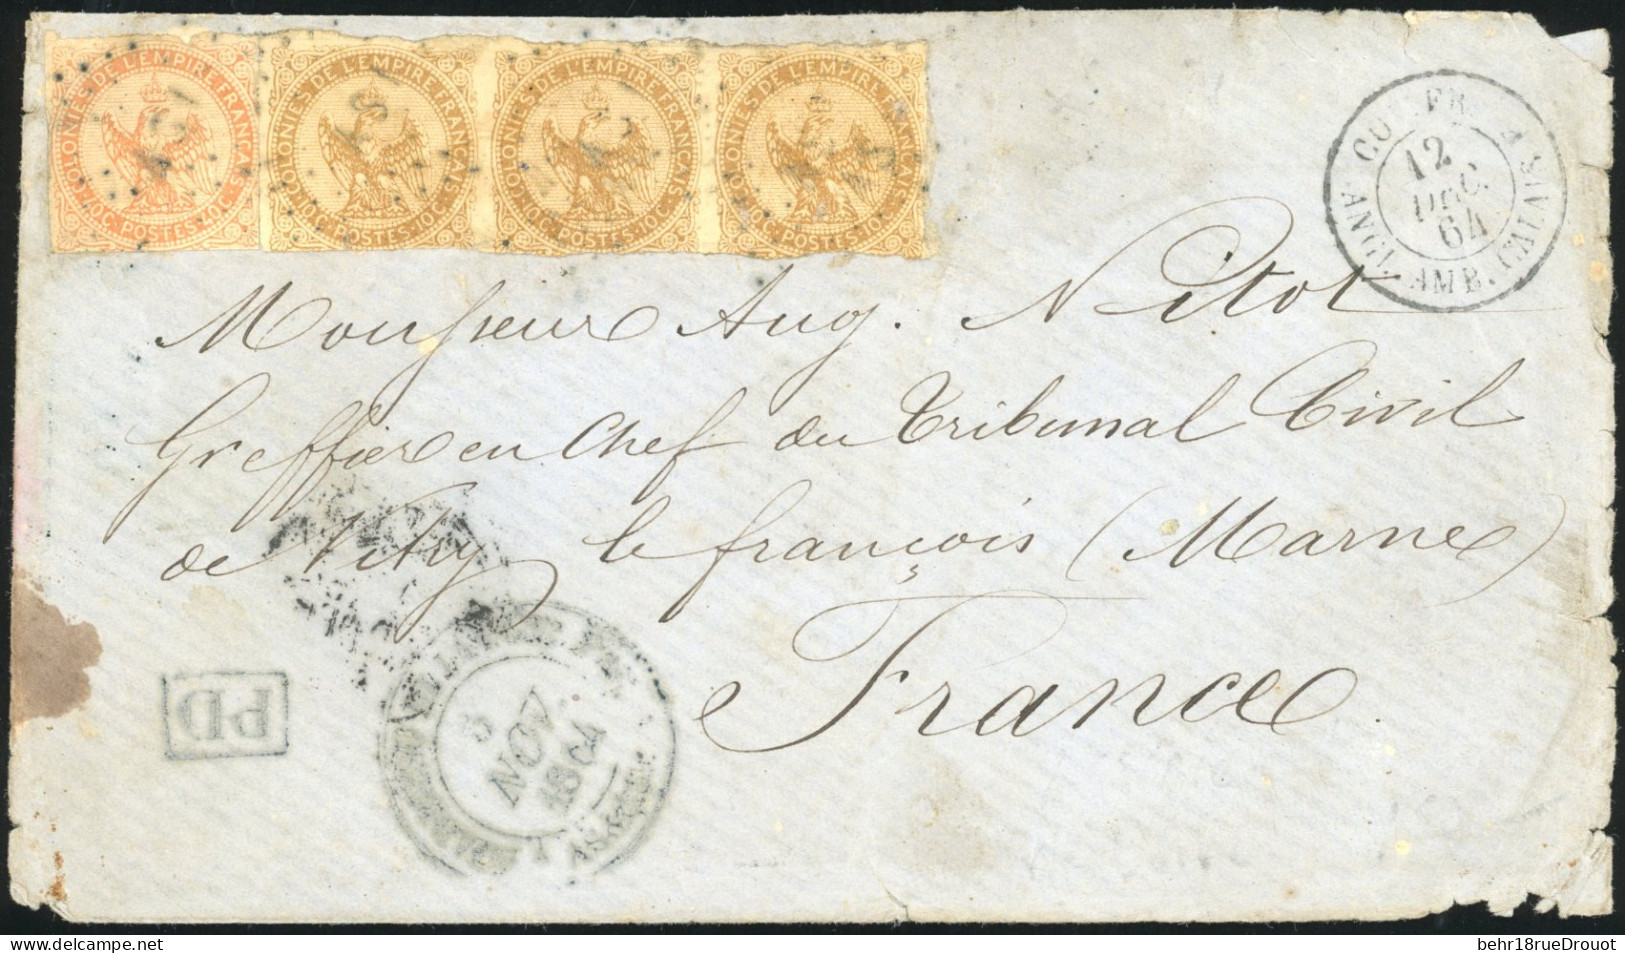 COLONIES DE L'EMPIRE FRANÇAIS
10C. POSTES 10C.
COLONIES DE L'EMPIRE FRANÇAIS
10C. POSTES 10C.
COLONIES DE L'EMPIRE FRANÇAIS
10C. POSTES 10C.
COLONIES DE L'EMPIRE FRANÇAIS
10C. POSTES 10C.
ANGL. AMB. CALAIS A
12
DEC.
64
Monsieur Aug. Nitot
Greffier en Chef du Tribunal Civil
de Vitry le françois (Marne)
France
PD
3
NOV
1864
behr18rueDrouot